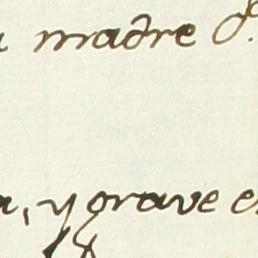 madre
, y grave